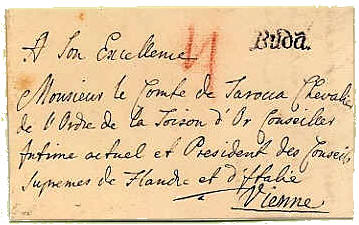 Buda.
A Son Excellence
Monsieur le Comte de Tarouca Chevalie
de l'Ordre de la Toison d'Or Conseiller
Intime actuel et President des Conseils
Supremes de Flandre et d'Italie
Vienne